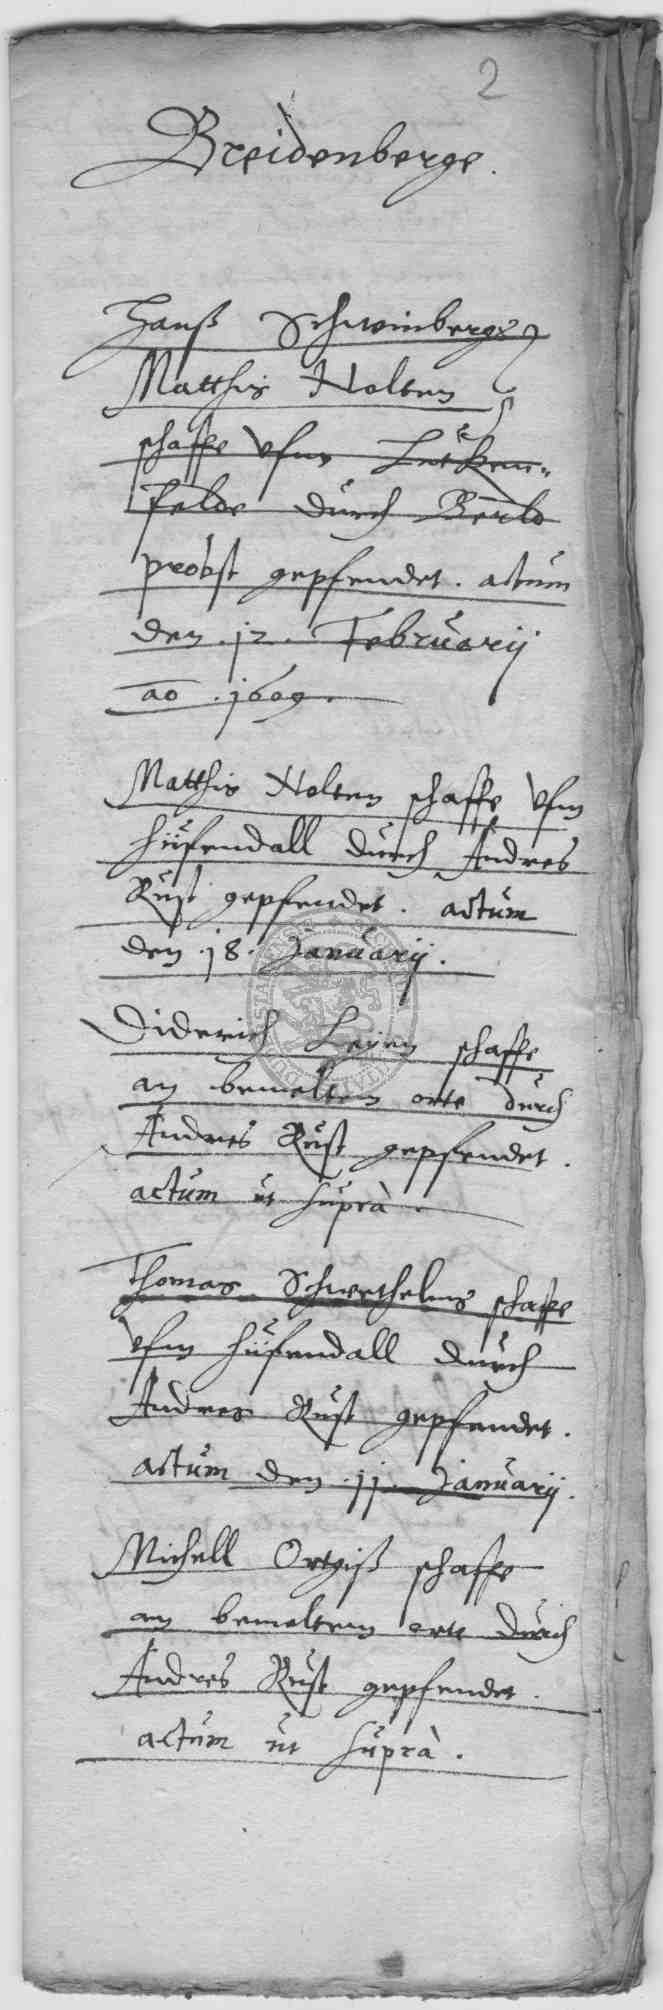 2
Breidenberge.
Hanß Schweinbergs
Matthis Nolten
schaffe vfm Lütken„
felde durch Berld
probst gepfendet. actum
den .12. Februarij
ao .1609.
Matthis Nolten schaffe vfm
Hüfendall durch Andres
Rust gepfendet. actum
den .18. Januarij.
Diderich Leyen schaffe
an bemeltem orte durch
Andres Rust gepfendet.
actum ut suprà.
Thomas Schwethelms schaffe
vfm Hüfendall durch
Andres Rust gepfendet.
actum den .11. Januarij.
Michell Ortgiß schaffe
an bemeltem orte durch
Andres Rust gepfendet.
actum ut suprà.